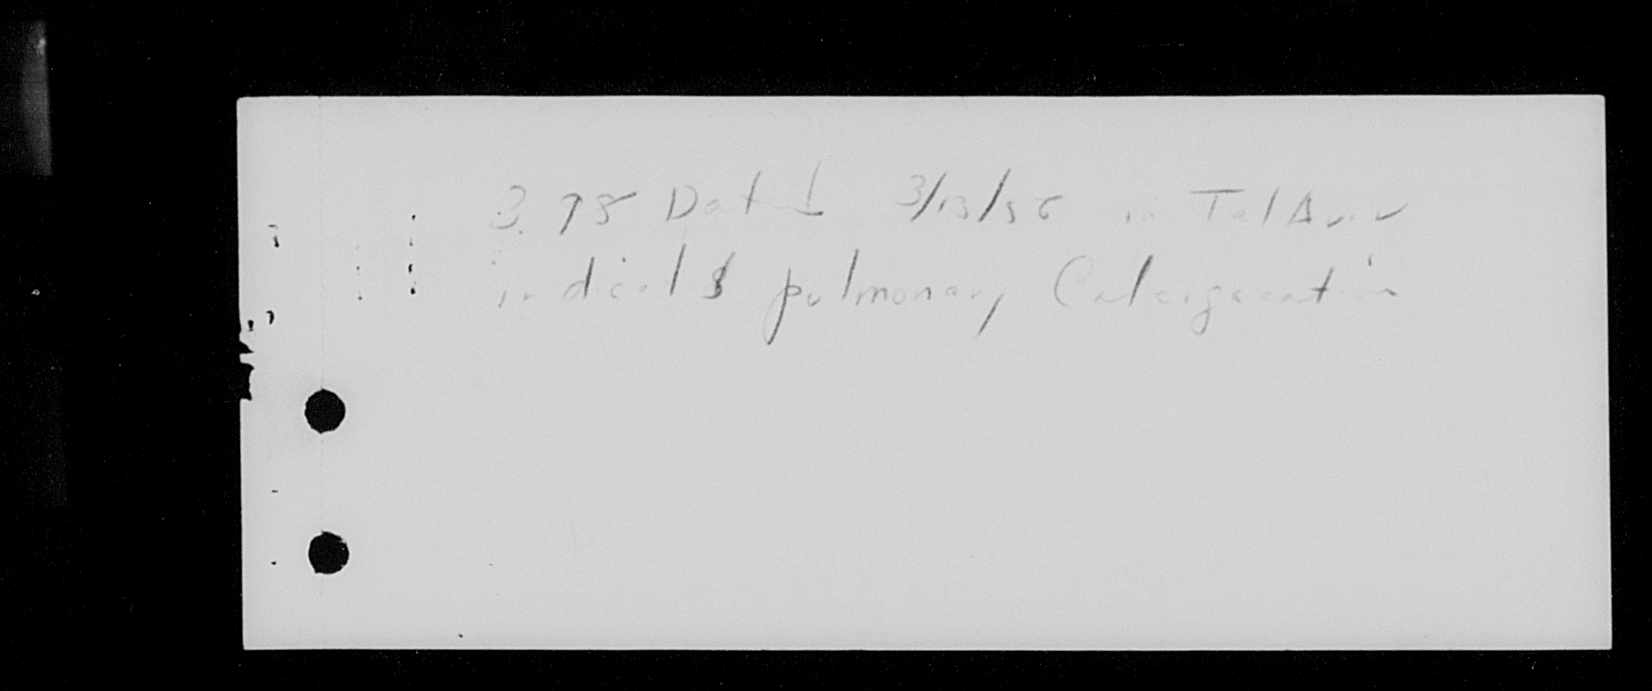 3.98 Dated 3/13/56 in Tel Aviv
indicats pulmonary Calcification